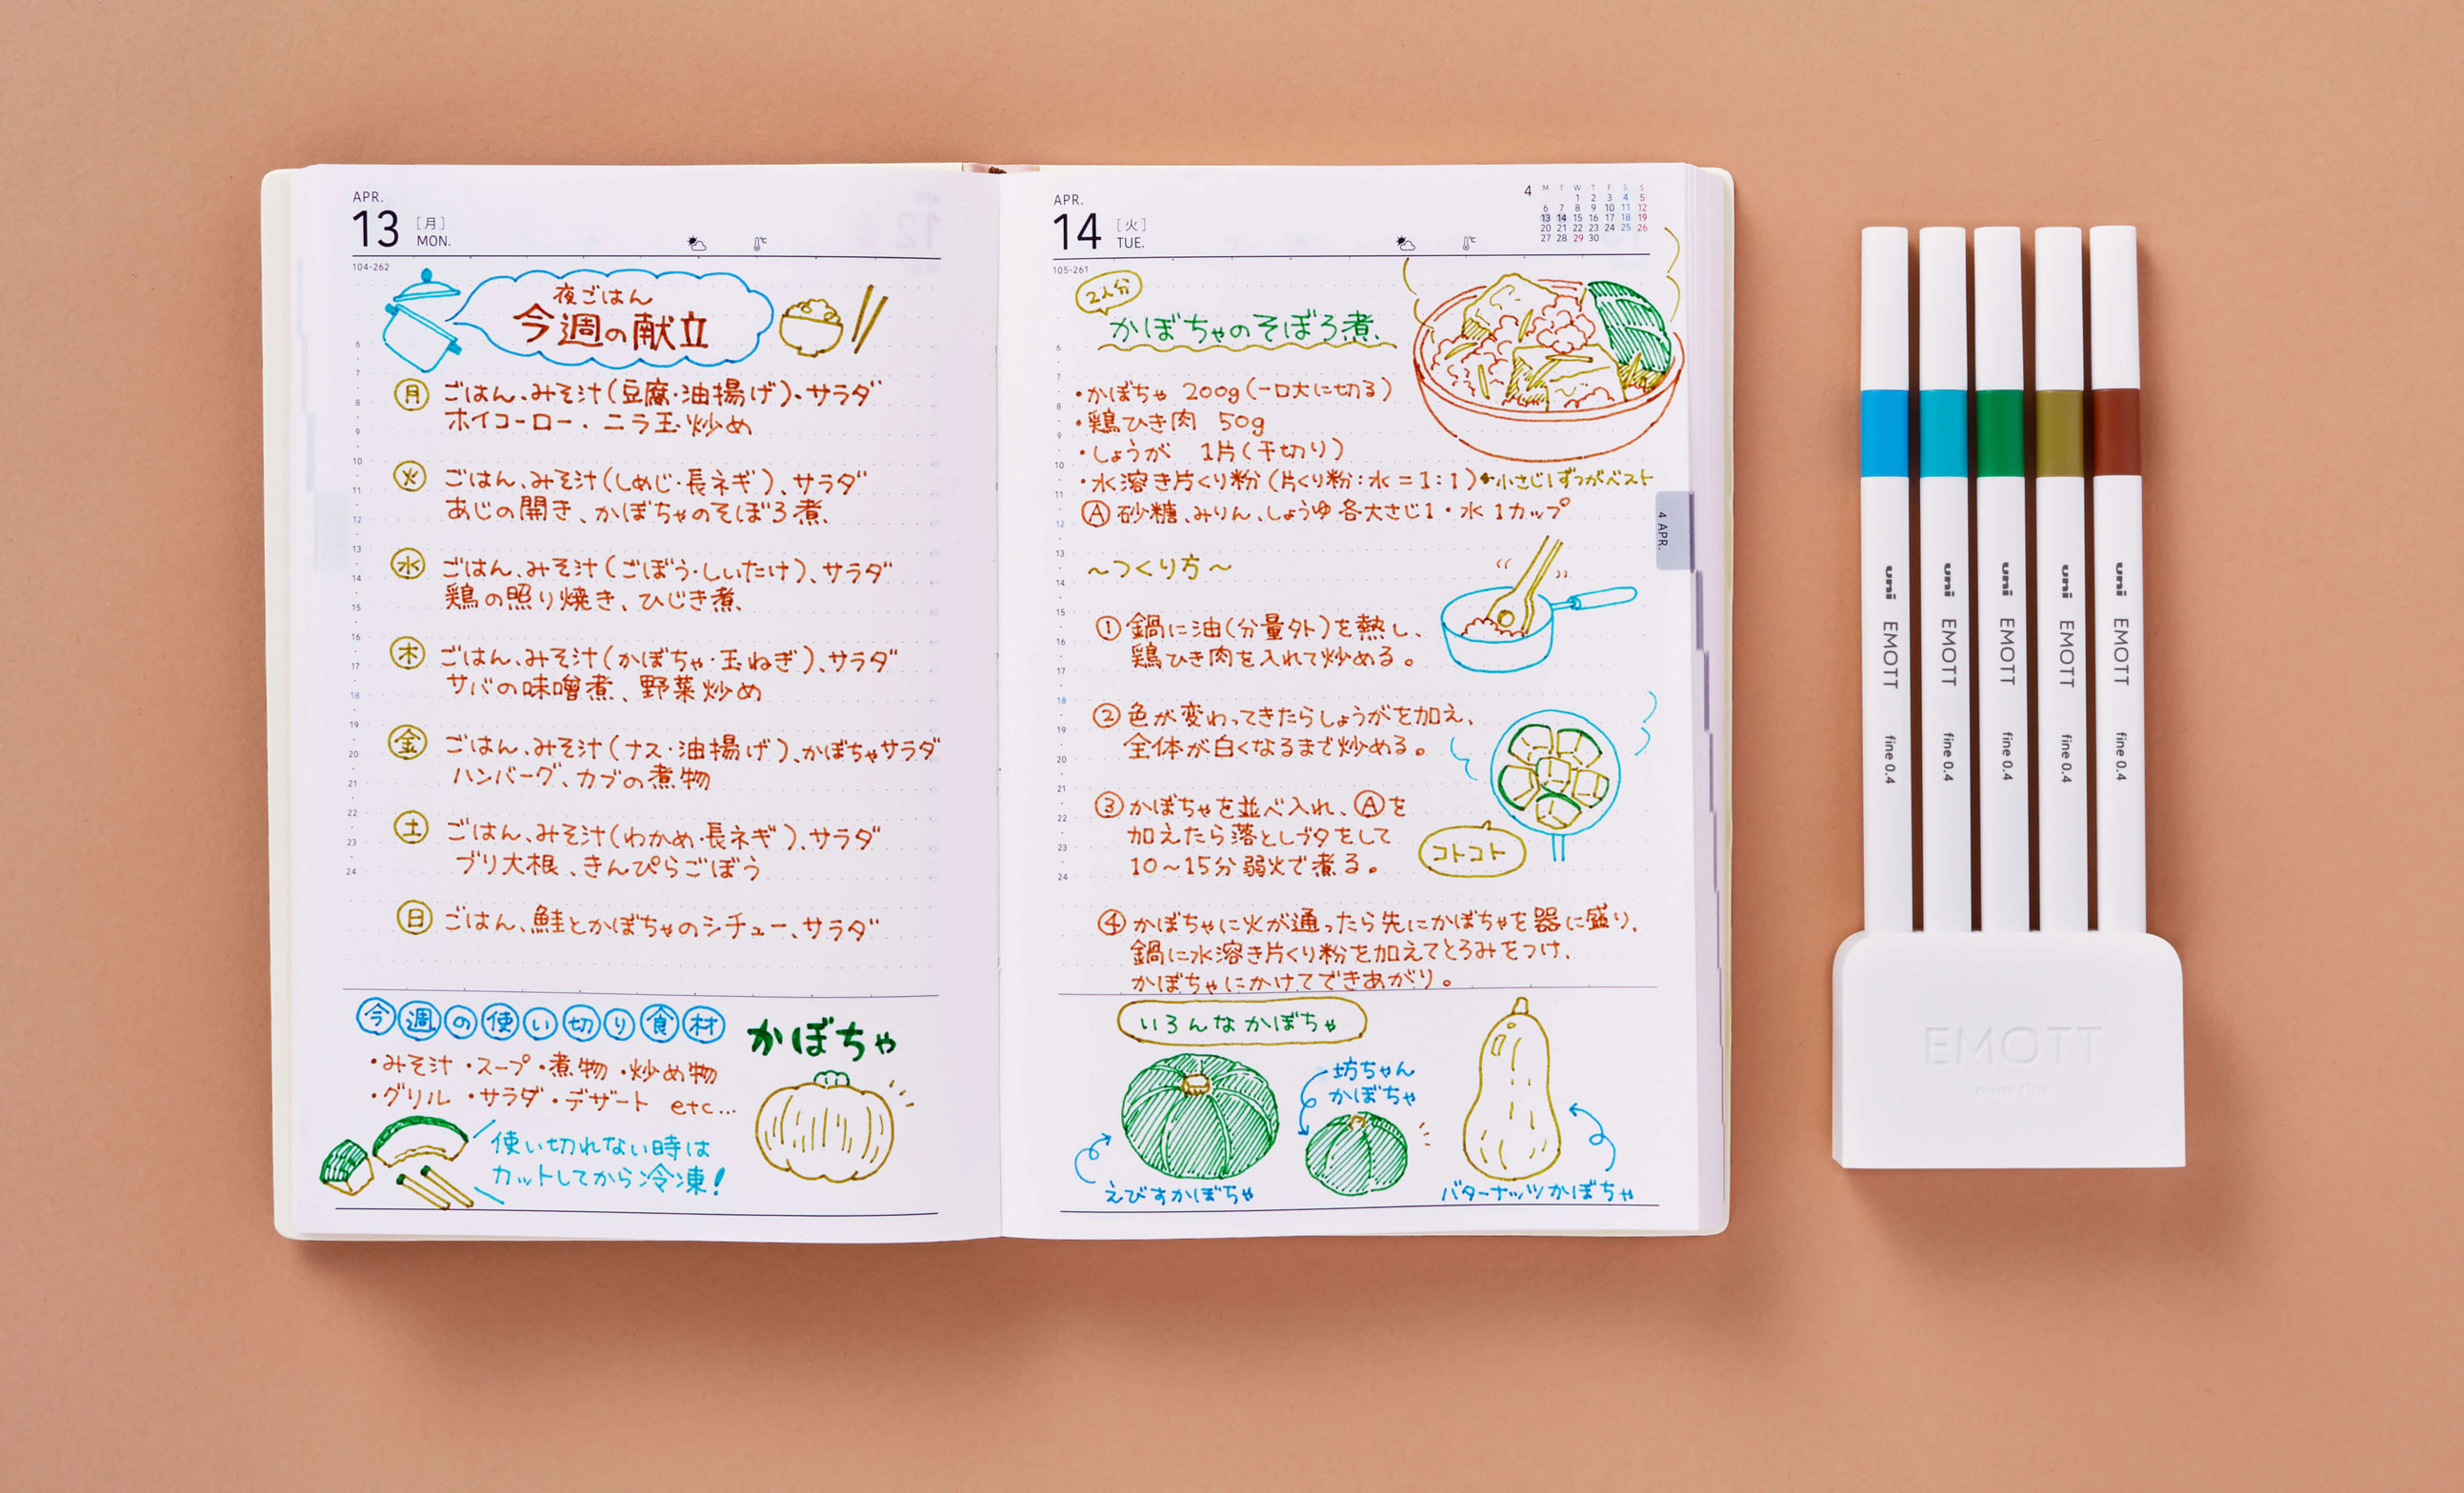 APR.
13 [月] MON.
104-262
夜ごはん
今週の献立
月 ごはん、みそ汁(豆腐・油揚げ)、サラダ
ホイコーロー、ニラ玉炒め
火 ごはん、みそ汁(しめじ・長ネギ)、サラダ
あじの開き、かぼちゃのそぼろ煮、
水 ごはん、みそ汁(ごぼう・しいたけ)、サラダ
鶏の照り焼き、ひじき煮、
木 ごはん、みそ汁(かぼちゃ・玉ねぎ)、サラダ
サバの味噌煮、野菜炒め
金 ごはん、みそ汁(ナス・油揚げ)、かぼちゃサラダ
ハンバーグ、カブの煮物
土 ごはん、みそ汁(わかめ・長ネギ)、サラダ
ブリ大根、きんぴらごぼう
日 ごはん、鮭とかぼちゃのシチュー、サラダ
6
7
8
9
10
11
12
13
14
15
16
17
18
19
20
21
22
23
24
今週の使い切り食材
かぼちゃ
・みそ汁・スープ・煮物・炒め物
・グリル・サラダ・デザート etc...
使い切れない時は
カットしてから冷凍!
APR.
14 [火] TUE.
4 M T W T F S S
1 2 3 4 5
6 7 8 9 10 11 12
13 14 15 16 17 18 19
20 21 22 23 24 25 26
27 28 29 30
105-261
2人分
かぼちゃのそぼろ煮、
・かぼちゃ 200g(一口大に切る)
・鶏ひき肉 50g
・しょうが 1片(千切り)
・水溶き片くり粉(片くり粉:水=1:1)←小さじ1ずつがベスト
Ⓐ砂糖、みりん、しょうゆ各大さじ1・水1カップ
〜つくり方〜
①鍋に油(分量外)を熱し、
鶏ひき肉を入れて炒める。
②色が変わってきたらしょうがを加え、
全体が白くなるまで炒める。
③かぼちゃを並べ入れ、Ⓐを
加えたら落としブタをして
10〜15分弱火で煮る。
コトコト
④かぼちゃに火が通ったら先にかぼちゃを器に盛り、
鍋に水溶き片くり粉を加えてとろみをつけ、
かぼちゃにかけてできあがり。
6
7
8
9
10
11
12
13
14
15
16
17
18
19
20
21
22
23
24
4 APR.
いろんなかぼちゃ
えびすかぼちゃ
坊ちゃん
かぼちゃ
バターナッツかぼちゃ
uni EMOTT fine 0.4
uni EMOTT fine 0.4
uni EMOTT fine 0.4
uni EMOTT fine 0.4
uni EMOTT fine 0.4
EMOTT